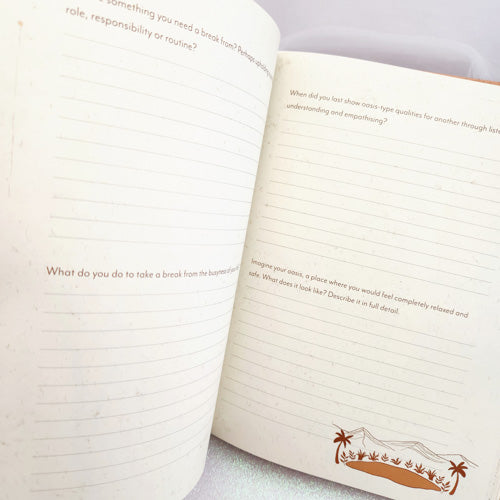 something you need a break from? Perhaps
role, responsibility or routine?
What do you do to take a break from the busyness of
When did you last show oasis-type qualities for another through
understanding and empathising?
Imagine your oasis, a place where you would feel completely relaxed and
safe. What does it look like? Describe it in full detail.